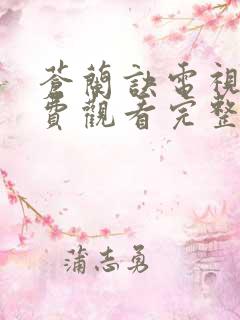 蒼蘭訣電視
費觀看完整
蒲志勇